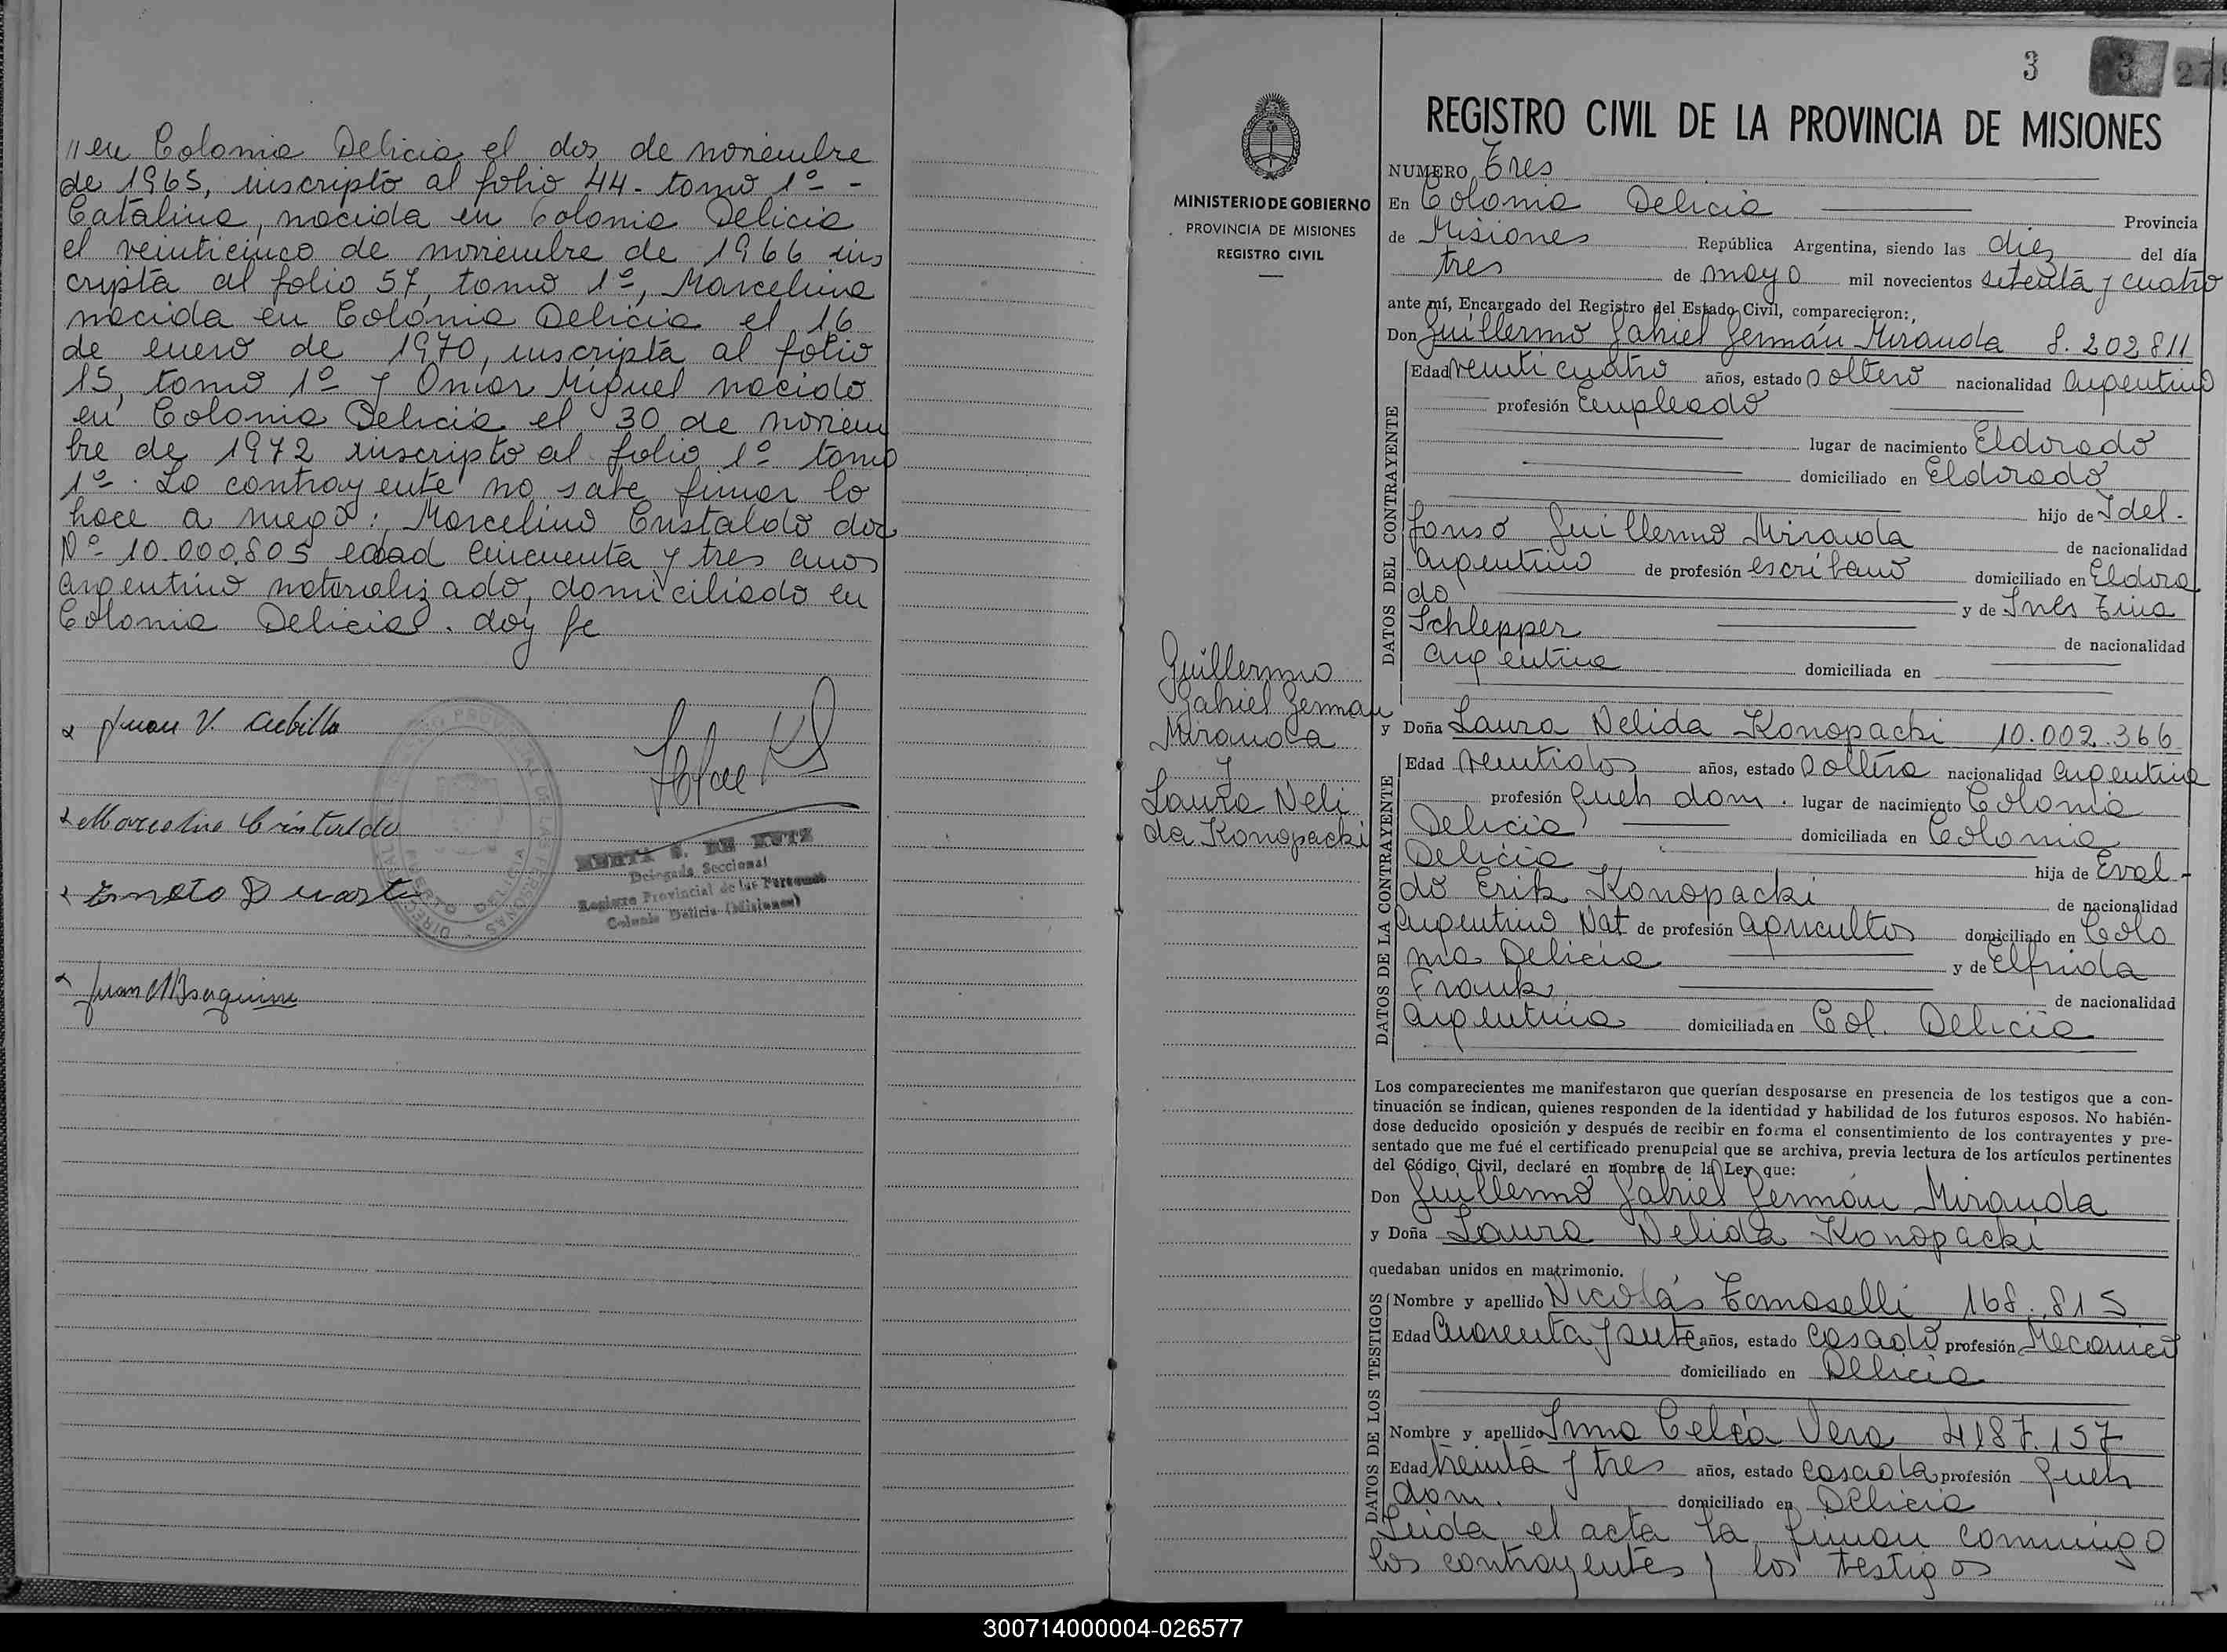 // en Colonia Delicia el dos de noviembre
de 1965, inscripto al folio 44- tomo 1º -
Catalina, nacida en Colonia Delicia
el veinticinco de noviembre de 1966 ins
cripta al folio 57, tomo 1º, Marcelina
nacida en Colonia Delicia el 16
de enero de 1970, inscripta al folio
15, tomo 1º y Omar Miguel nacido
en Colonia Delicia el 30 de noviem
bre de 1972 inscripto al folio 1º tomo
1º. La contrayente no sabe firmar lo
hace a ruego: Marcelino Cristaldo doc
Nº 10.000.805 edad cincuenta y tres años
argentino naturalizado, domiciliado en
Colonia Delicia. doy fe
Juan V. Cubilla
Marcelino Cristaldo
Ernesto Duarte
Delegada Seccional
Registro Provincial de las Personas
Colonia Delicia (Misiones)
3
3
279
MINISTERIO DE GOBIERNO
PROVINCIA DE MISIONES
REGISTRO CIVIL
Guillermo
Gabriel German
Miranda
y
Laura Neli
da Konopacki
REGISTRO CIVIL DE LA PROVINCIA DE MISIONES
NUMERO Tres
En Colonia Delicia Provincia
de Misiones República Argentina, siendo las diez del día
tres de mayo mil novecientos setenta y cuatro
ante mí, Encargado del Registro del Estado Civil, comparecieron:
Don Guillermo Gabriel Germán Miranda 8.202811
DATOS DEL CONTRAYENTE
Edad veinticuatro años, estado soltero nacionalidad argentino
profesión empleado
lugar de nacimiento Eldorado
domiciliado en Eldorado
hijo de Idel-
fonso Guillermo Miranda de nacionalidad
argentino de profesión escribano domiciliado en Eldora
do y de Ines Tina
Schlepper de nacionalidad
argentina domiciliada en
y Doña Laura Nelida Konopacki 10.002.366
DATOS DE LA CONTRAYENTE
Edad veintidos años, estado soltera nacionalidad argentina
profesión queh dom. lugar de nacimiento Colonia
Delicia domiciliada en Colonia
Delicia hija de Eval-
do Erik Konopacki de nacionalidad
argentino Nat de profesión agricultor domiciliado en Colo
nia Delicia y de Elfrida
Frank de nacionalidad
argentina domiciliada en Col. Delicia
Los comparecientes me manifestaron que querían desposarse en presencia de los testigos que a con-
tinuación se indican, quienes responden de la identidad y habilidad de los futuros esposos. No habién-
dose deducido oposición y después de recibir en forma el consentimiento de los contrayentes y pre-
sentado que me fué el certificado prenupcial que se archiva, previa lectura de los artículos pertinentes
del Código Civil, declaré en nombre de la Ley que:
Don Guillermo Gabriel Germán Miranda
y Doña Laura Nelida Konopacki
quedaban unidos en matrimonio.
DATOS DE LOS TESTIGOS
Nombre y apellido Nicolás Tomaselli 168.815
Edad cuarenta y siete años, estado casado profesión Mecanico
domiciliado en Delicia
Nombre y apellido Irma Celia Vera 4187.157
Edad treinta y tres años, estado casada profesión queh
dom. domiciliado en Delicia
Leida el acta la firman conmigo
los contrayentes y los testigos
300714000004-026577